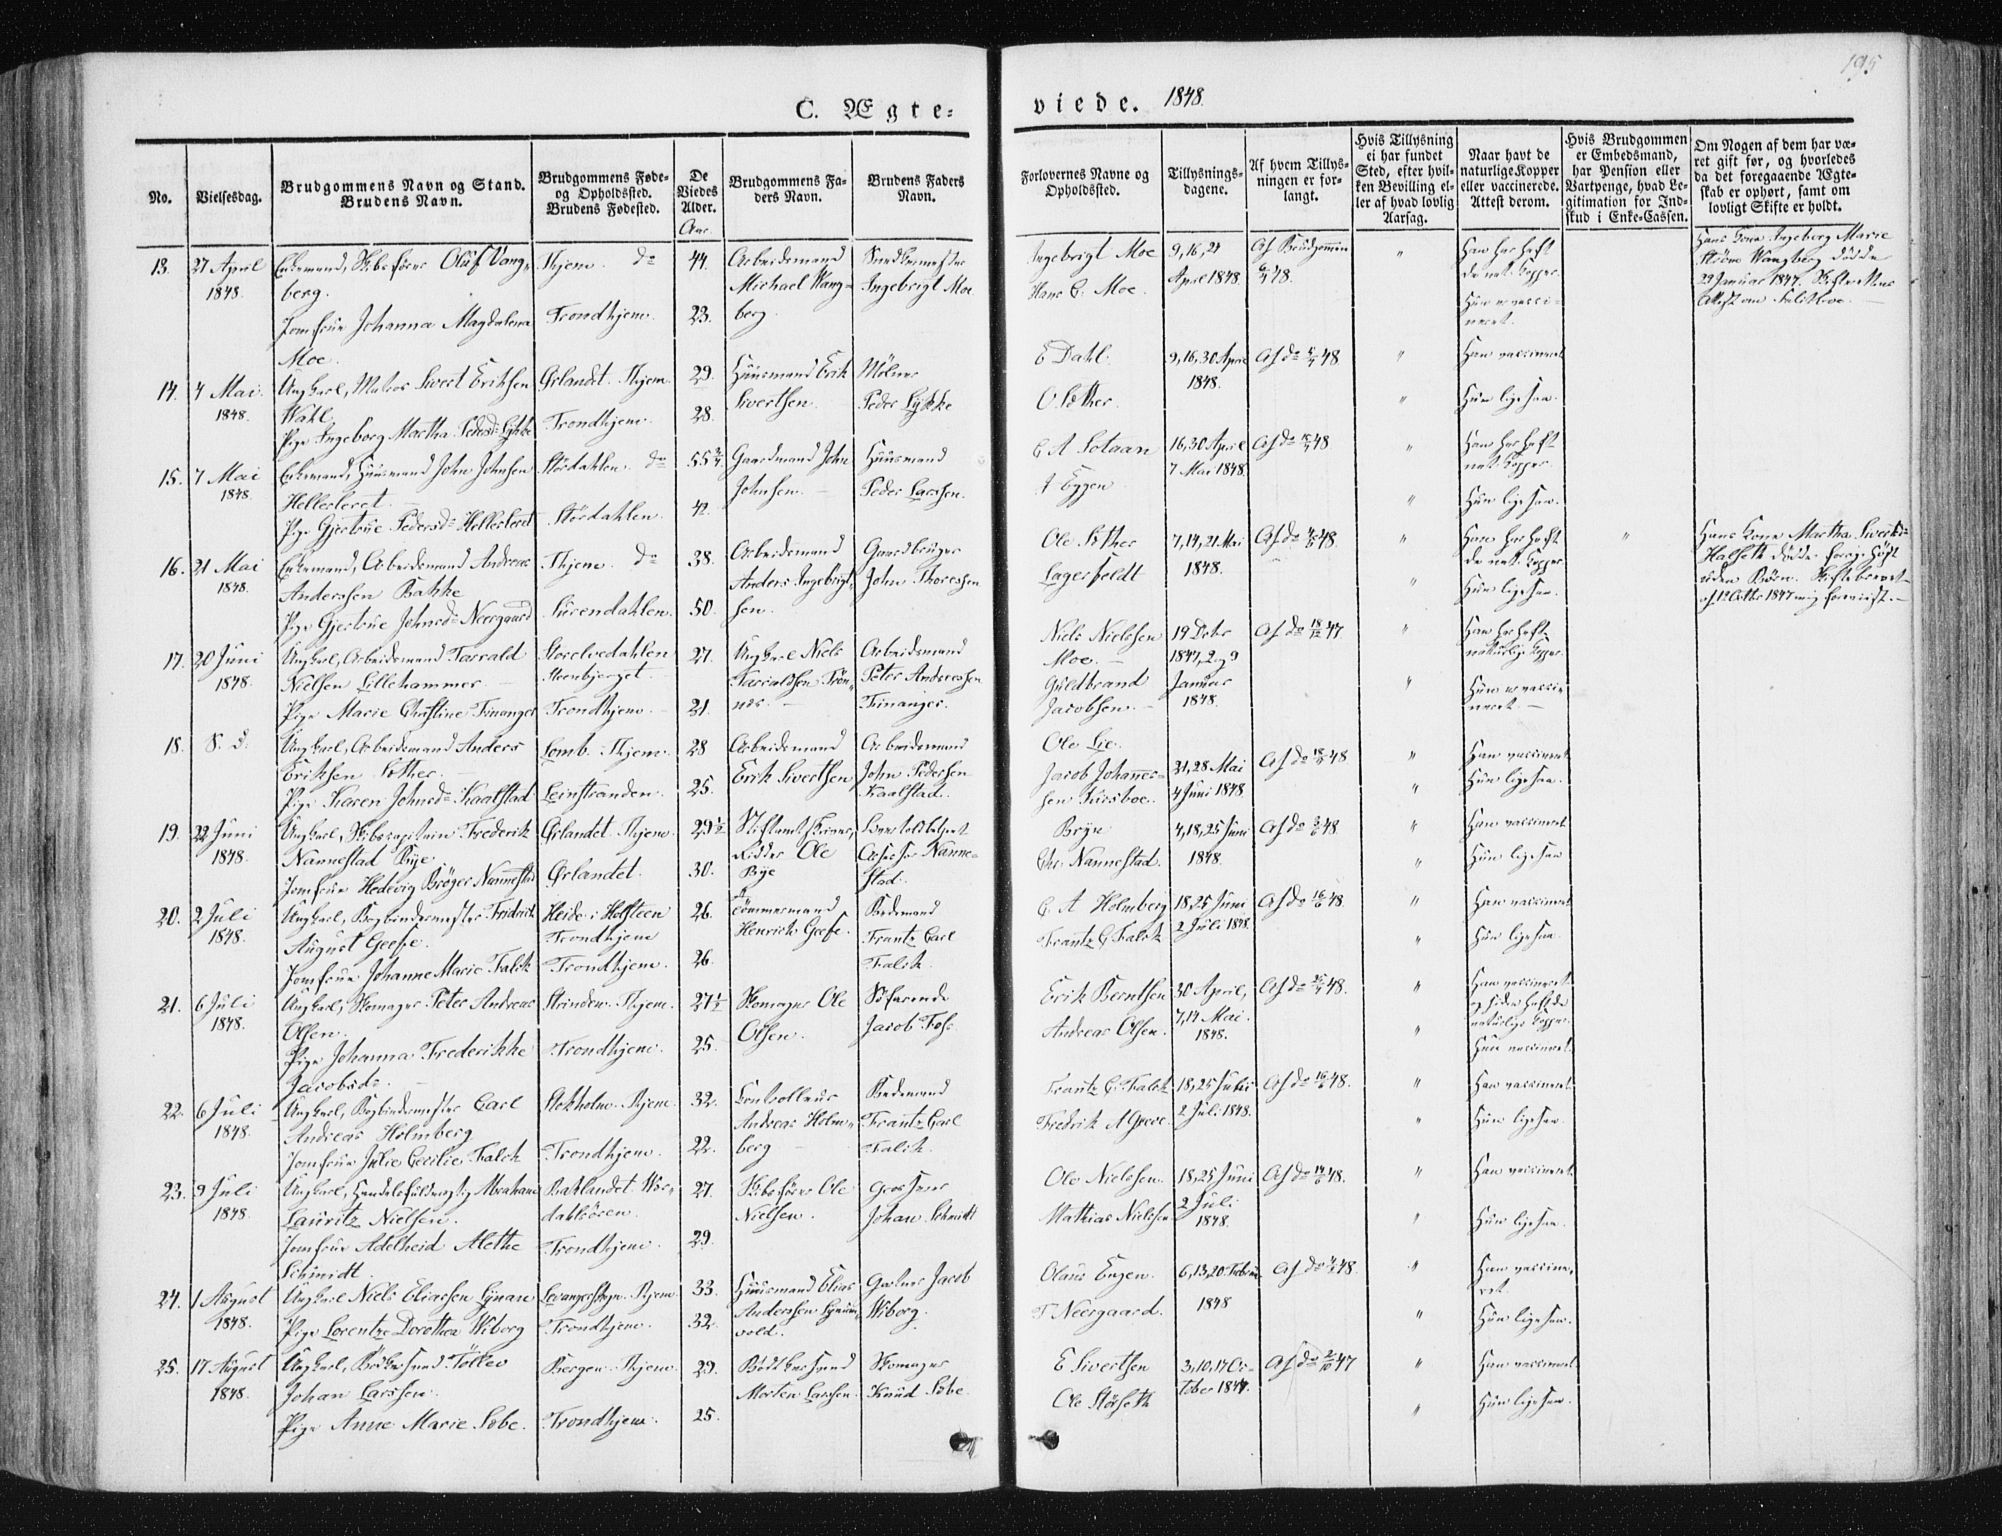 195
C. Ægte=
viede. 1848.
No.
Vielsesdag.
Brudgommens Navn og Stand.
Brudens Navn.
Brudgommens Føde-
og Opholdssted.
Brudens Fødested.
De
Viedes
Alder.
Aar.
Brudgommens Fa-
ders Navn.
Brudens Faders
Navn.
Forlovernes Navne og
Opholdssted.
Tillysnings-
dagene.
Af hvem Tillys-
ningen er for-
langt.
Hvis Tillysning
ei har fundet
Sted, efter hvil-
ken Bevilling el-
ler af hvad lovlig
Aarsag.
Naar havt de
naturlige Kopper
eller vaccinerede.
Attest derom.
Hvis Brudgommen
er Embedsmand,
har Pension eller
Vartpenge, hvad Le-
gitimation for Ind-
skud i Enke-Cassen.
Om Nogen af dem har væ-
ret gift før, og hvorledes
da det foregaaende Ægte-
skab er ophørt, samt om
lovligt Skifte er holdt.
13.
27 April
1848.
Enkemand, Skibsfører Oluf Vang-
berg.
Jomfrue Johanna Magdalena
Moe.
Thjem. do
Trondhjem.
44.
23.
Arbeidsmand
Michael Wang-
berg.
Ingebrigt Moe
Ingebrigt Moe
Hans C. Moe.
9, 16, 24
April 1848.
Af Brudgommen
48.
"
Han har haft
de nat. Kopper.
Hun er vacci-
neret.
Hans Kone Ingeborg Marie
Strøm Wangberg døde
29 Januar 1847.
14.
4 Mai
1848.
Ungkarl, Matros Sivert Eriksen
Wahl.
Pige Ingeborg Martha Pedersd: Lykke
Ørlandet. Thjem.
Trondhjem.
29.
28.
Huusmand Erik
Sivertsen.
Møller
Peder Lykke
E Dahl.
O Sæther.
9, 16, 30 April
1848.
Af do 48
"
Han vaccineret
Hun ligesaa.
15.
7 Mai
1848.
Enkemand, Huusmand John Johnsen
Hellesleret
Pige Gjertrue Pedersd: Hellesleret
Størdahlen. do
Størdahlen.
55 3/4
42.
Gaardmand John
Johnsen.
Huusmand
Peder Larssen.
E A Solaan
A Eggen
16, 30 April
7 Mai 1848.
Af do 48.
"
Han har haft
nat. Kopper.
Hun ligesaa.
16.
21 Mai
1848.
Enkemand, Arbeidsmand Andreas
Anderssen Bakke
Pige Gjertrue Johnsd: Neergaard
Thjem. do
Surendahlen.
38.
50.
Arbeidsmand
Anders Ingebrigt-
sen.
Gaardbruger
John Thoressen
Ole Sæther
Lagerfeldt
7, 14, 21 Mai
1848.
Af do 48.
"
Han har haft
de nat. Kopper
Hun ligesaa.
"
Hans Kone Martha Sivertsd:
Halseth døde forrige Høst
uden Børn. Skiftebrevet
af 12 Octbr 1847 mig foreviist.
17.
20 Juni
1848.
Ungkarl, Arbeidsmand Tarrald
Nielsen Lillehammer.
Pige Marie Christine Finanger
Storelvedahlen
Steenbjerget.
Trondhjem.
27.
21.
Ungkarl Niels
Tarraldsen Trøn-
nes.
Arbeidsmand
Peter Andreassen
Finanger.
Niels Nielssen
Moe.
Guldbrand
Jacobsen.
19 Debr
1847, 2 og 9
Januar
1848.
Af do 18/12 47
"
Han har haft
naturlige Kopper.
Hun er vacci-
neret
18.
S. d.
Ungkarl, Arbeidsmand Anders
Eriksen Sæther.
Pige Karen Johnsd: Kaalstad
Lomb. Thjem.
Leinstranden.
28
25.
Arbeidsmand
Erik Sivertsen
Arbeidsmand
John Pedersen
Kaalstad.
Ole Lie.
Jacob Johannes-
sen Kursboe.
21, 28 Mai
4 Juni 1848.
Af do 18/5 48
"
Han vaccineret
Hun ligesaa.
19.
22 Juni
1848.
Ungkarl, Skibscapitain Frederik
Nannestad Bye.
Jomfrue Hedevig Brøger Nannestad
Ørlandet. Thjem
Ørlandet.
29 1/2
30.
Ridder Ole
Bye
Assessor Nanne-
stad.
Bryn
Chr. Nannestad.
4, 18, 25 Juni
1848.
Af do 48.
"
Han vaccineret
Hun ligesaa
20.
2 Juli
1848.
Ungkarl, Bogbindermester Fridrich
August Geese.
Jomfrue Johanne Marie Falck
Heide i Holsteen
Trondhjem
Trondhjem.
26.
26.
Tømmermand
Henrich Geese.
Bedemand
Frantz Carl
Falck.
C. A Holmberg
Frantz C Falck
18, 25 Juni
2 Juli 1848.
Af do 16/6 48.
"
Han vaccineret
Hun ligesaa
21.
6 Juli
1848.
Ungkarl, Skomager Peter Andreas
Olsen.
Pige Johanna Frederikke
Jacobsd:
Strinden. Thjem.
Trondhjem.
27 1/2
25.
Skomager Ole
Olsen.
Søfarende
Jacob Foss
Erik Berntsen
Andreas Olsen.
30 April,
7, 14 Mai.
1848.
Af do 48.
"
Han vaccineret
og siden haft de
naturlige Kopper.
Hun vaccineret.
22.
6 Juli
1848.
Ungkarl, Bogbindermester Carl
Andreas Holmberg
Jomfrue Julie Cecilie Falck
Stokholm. Thjem.
Trondhjem.
32.
22.
Controlleur
Andreas Holm-
berg
Bedemand
Frantz Carl
Falck.
Frantz C. Falck
Fredrik A Geese
18, 25 Juni
2 Juli 1848.
Af do 16/6 48.
"
Han vaccineret
Hun ligesaa.
23.
9 Juli
1848.
Ungkarl, Handelsfuldmægtig Abraham
Lauritz Nielsen.
Jomfrue Adelheid Alethe
Schmidt.
Baklandet. Wær-
dahlsøren.
Trondhjem.
27.
29.
Skibsfører Ole
Nielsen.
Grosserer
Johan Schmidt
Ole Nielssen.
Mathias Nielssen
18, 25 Juni
2 Juli
1848.
Af do 14/6 48.
"
Han vaccineret
Hun ligesaa.
24.
1 August
1848.
Ungkarl Niels Eliassen Gjnan
Pige Lorentze Dorothea Wiborg
Trondhjem.
33.
32.
Huusmand Elias
Anderssen
vold.
Gartner Jacob
Wiborg.
Olaus Engen.
T Neergaard.
6, 13, 20 Februar
1848
Af do 48.
"
Han vaccine-
ret.
Hun ligesaa.
25.
17 August
1848.
Ungkarl, Bødkersvend Tollev
Johan Larssen.
Pige Anne Marie Sobe.
Bergen. Thjem.
Trondhjem.
29.
25.
Bødkersvend
Morten Larssen.
Skomager
Knud Sobe.
E Sivertsen
Ole Størseth
3, 10, 17 Oc-
tober 1847.
Af do 2/10 47
"
Han vaccineret
Hun ligesaa.